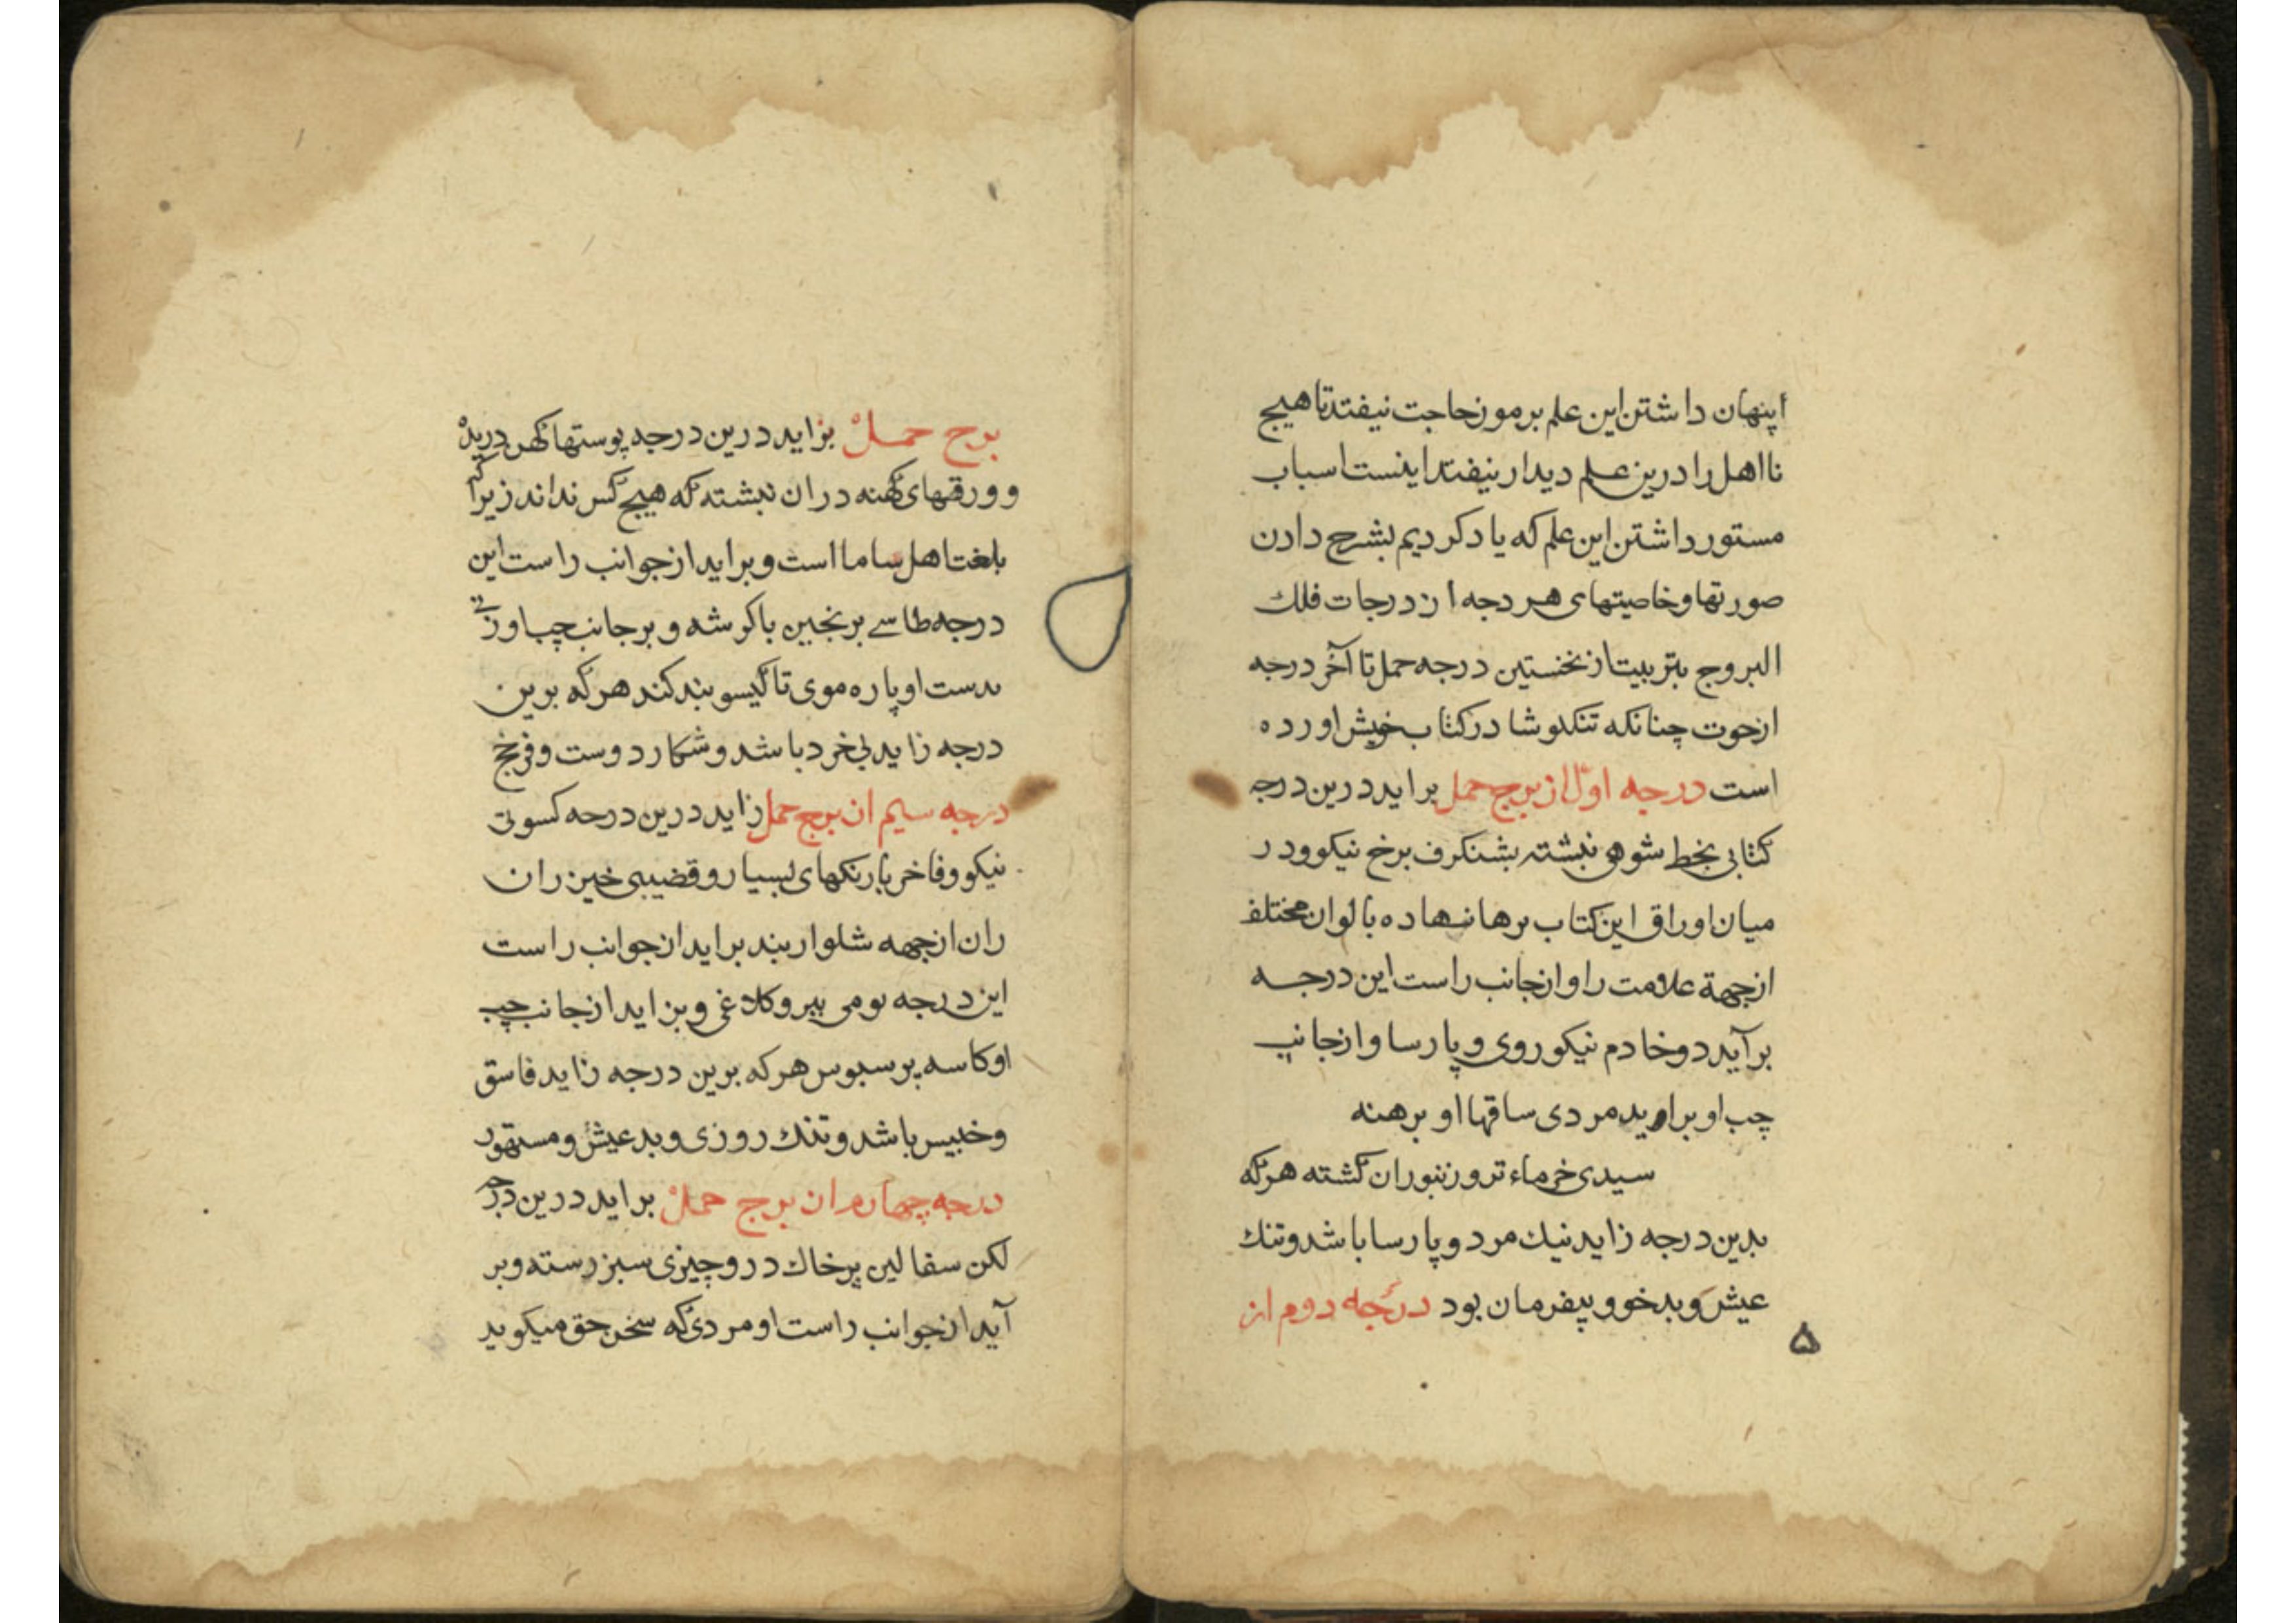 پنهان داشتن این علم برموز حاجت نیفتد تا هیچ
نااهل را درین علم دیدار نیفتد اینست اسباب
مستور داشتن این علم که یاد کردیم بشرح دادن
صورتها و خاصیتهای هر دجه از درجات فلك
البروج بتربیت از نخستین درجه حمل تا آخر درجه
از حوت چنانکه تنکلوشا در کتاب خویش اورده
است درجه اوّل از برج حمل براید درین درجه
کتابی بخط نبشته بشنکرف برخ نیکو و در
میان اوراق این کتاب برها نهاده بالوان مختلف
ازجهة علامت را و ازجانب راست این درجه
برآید دو خادم نیکوروی و پارسا و ازجانب
چب او براید مردی ساقها او برهنه
سبدی خرماء تر و زنبوران کشته هرکه
بدین درجه زاید نیك مرد و پارسا باشد و تنك
عیش و بدخو و بیفرمان بود درجه دوم از
۵
برج حمل بزاید درین درجه پوستها کهن دریده
و ورقهای کهنه دران نبشته که هیچ کس نداند زیراکه
بلغت اهل ساما است و براید از جوانب راست این
درجه طاسے برنجین با کرشه و برجانب چب او زنی
بدست او پاره موی تا کیسو بند کند هرکه برین
درجه زاید بی خرد باشد و شکار دوست و
درجه سیم از برج حمل زاید درین درجه کسوتی
نیکو و فاخر با رنکهای بسیار و قضیبی خیزران
ران ازجهه شلوار بند براید از جوانب راست
این درجه بومی پیر و کلاغی و بزاید ازجانب چپ
او کاسه پر سبوس هرکه برین درجه زاید فاسق
و خبیس باشد و تنك روزی و بد عیش و
درجه چهارم از برج حمل براید درین درجه
لکن سفالین پر خاك درو چیزی سبز رسته و بر
آید از جوانب راست او مردی که سخن حق میکوید